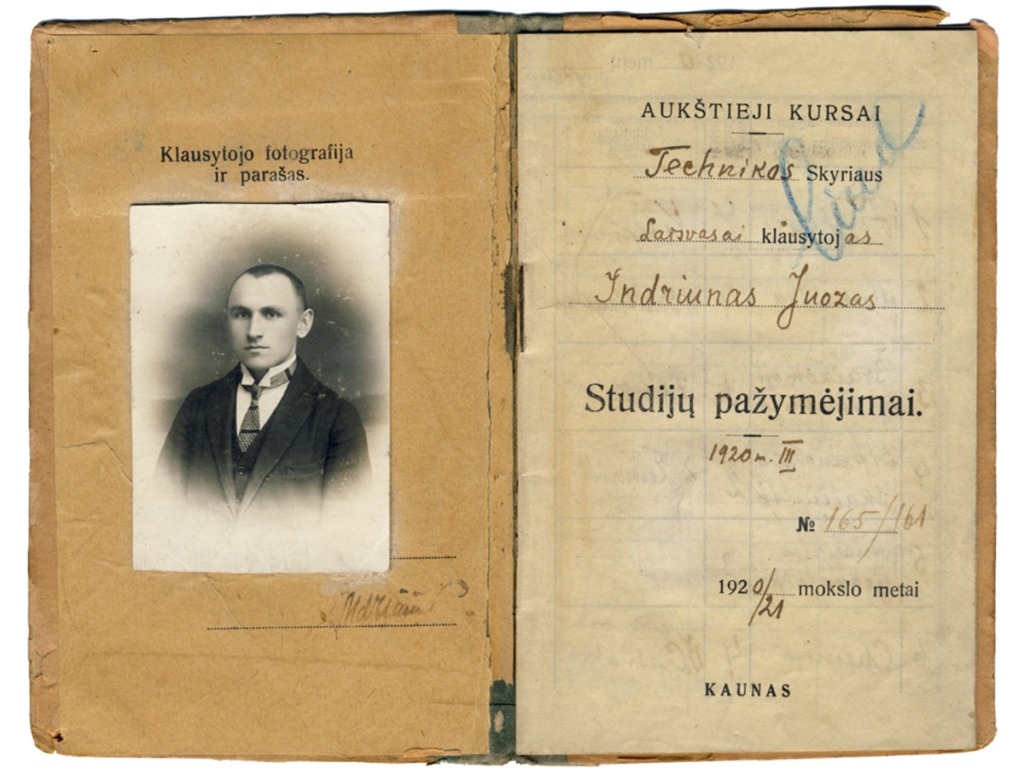 Klausytojo fotografija
ir parašas.
AUKŠTIEJI KURSAI
Technikos Skyriaus
Laisvasai klausytojas
Indriunas Juozas
Studijų pažymėjimai.
1920 m. III
№ 165/161
1920/21 mokslo metai
KAUNAS